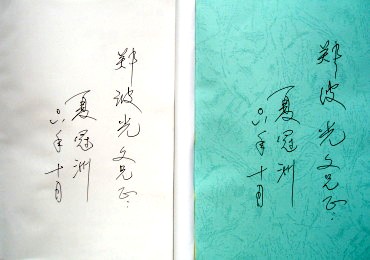 郑波光文兄正：
夏冠洲
年十月
郑波光文兄正：
夏冠洲
年十月